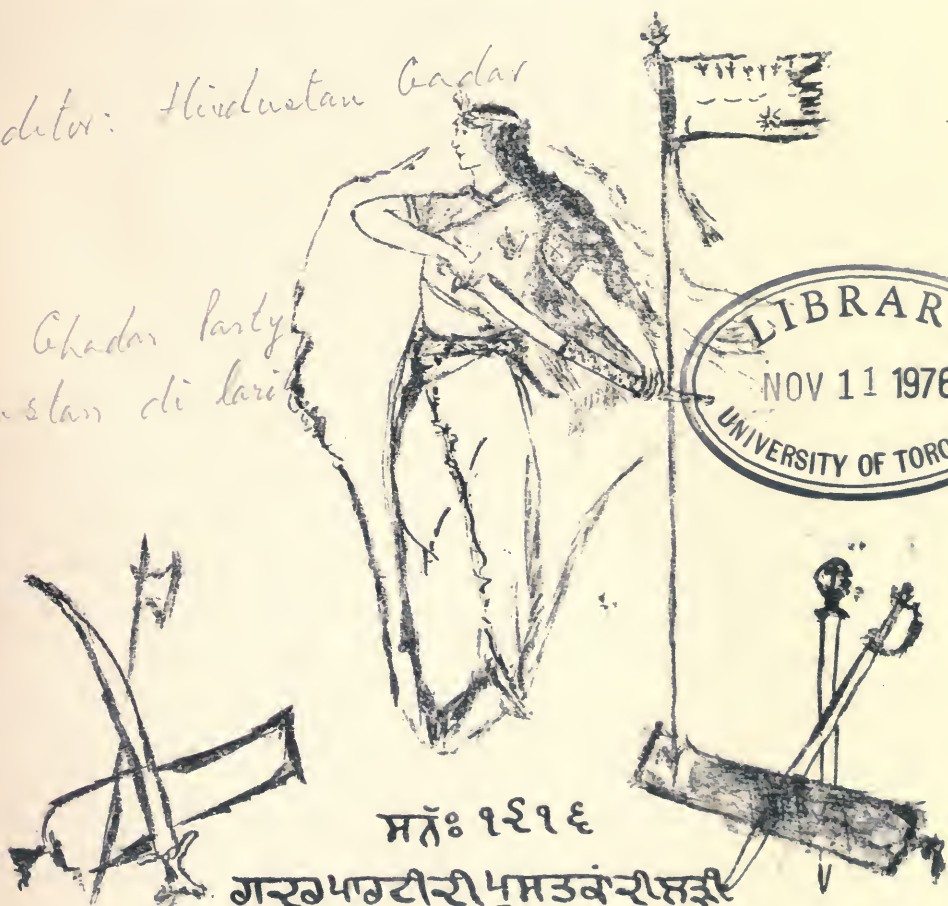 ditor: Hindustan Gadar
Ghadar Party
stan di lari
LIBRAR
NOV 11 1976
UNIVERSITY OF TORO
ਸਨੰ: ੧੬੧੬
ਗਦਰ ਪਾਰਟੀ ਦੀ ਪੁਸਤਕਾਂ ਦੀ ਲੜੀ